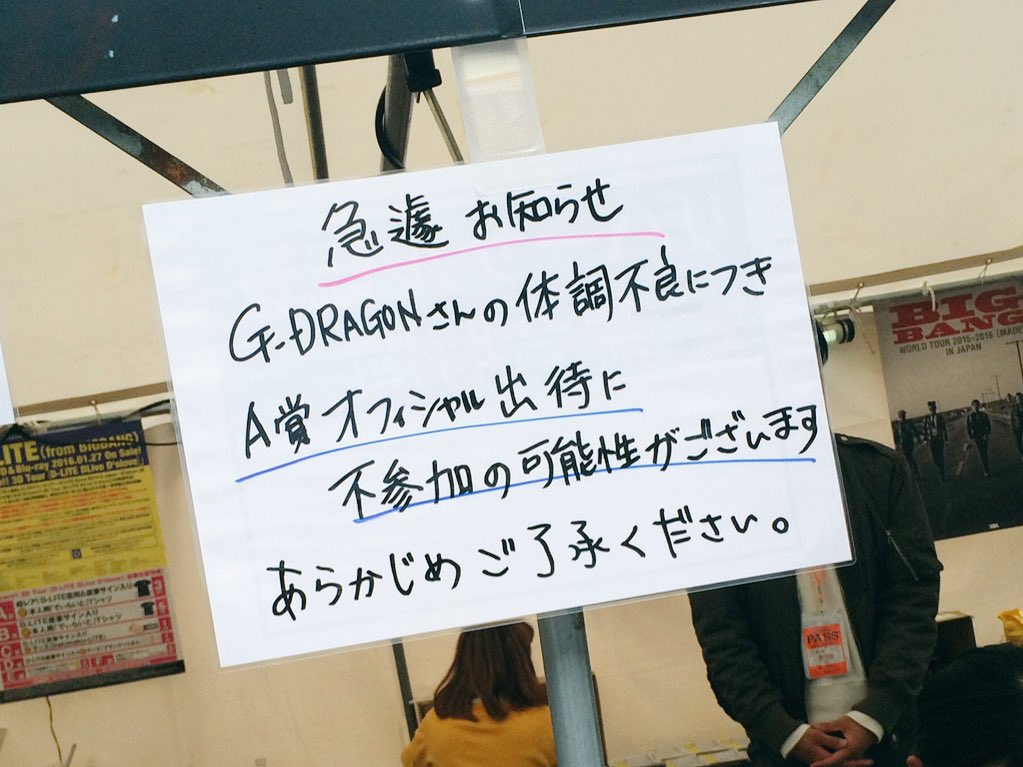 急遽 お知らせ
G-DRAGONさんの体調不良につき
A賞 オフィシャル出待に
不参加の可能性がございます
あらかじめご了承ください。
BIG
BANG
WORLD TOUR 2015-2016 [MADE]
IN JAPAN
LITE (from BIGBANG)
2016.01.27 On Sale!
PASS